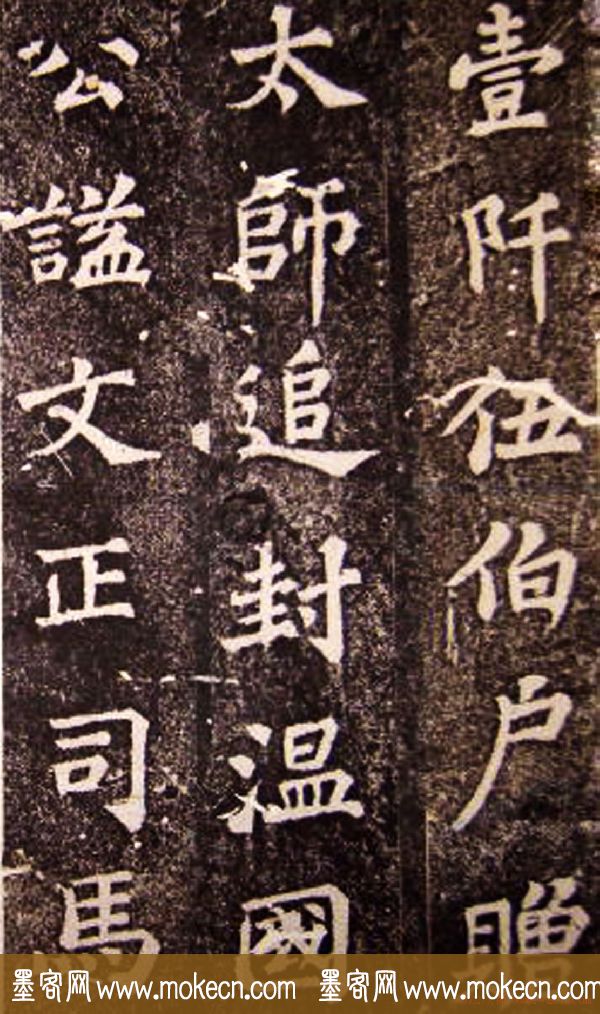 壹阡伍伯户贈
太師追封温國
公謚文正司馬
墨客网 www.mokecn.com 墨客网 www.mokecn.com